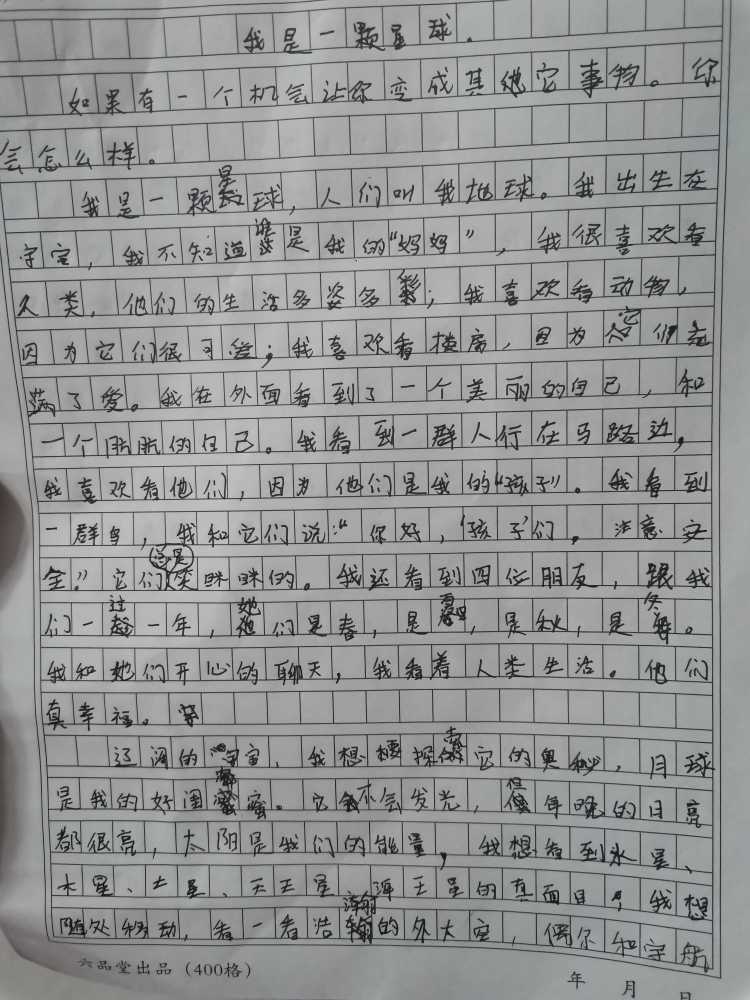 我是一颗星球.
如果有一个机会让你变成其他它事物。你
会怎么样。
我是一颗星球，人们叫我地球。我出生在
宇宙，我不知道谁是我的“妈妈”，我很喜欢看
人类，他们的生活多姿多彩；我喜欢看动物，
因为它们很可爱；我喜欢看植席，因为它们充
满了爱。我在外面看到了一个美丽的自己，和
一个肮脏的自己。我看到一群人行在马路边，
我喜欢看他们，因为他们是我的“孩子”。我看到
一群鸟，我和它们说：“你好，孩子们，注意安
全。”它们总是笑眯眯的。我还看到四位朋友，跟我
们一过一年，她们是春，是夏，是秋，是冬。
我和她们开心的聊天，我看着人类生活。他们
真幸福。
辽阔的宇宙，我想探索它的奥秘，月球
是我的好闺蜜。它不会发光，但年晚的日亮
都很亮，太阳是我们的能量，我想看到水星、
木星、土星、天王星、海王星的真面目，我想
随处移动，看一看浩瀚的外太空，偶尔和宇航
六品堂出品（400格）
年 月 日